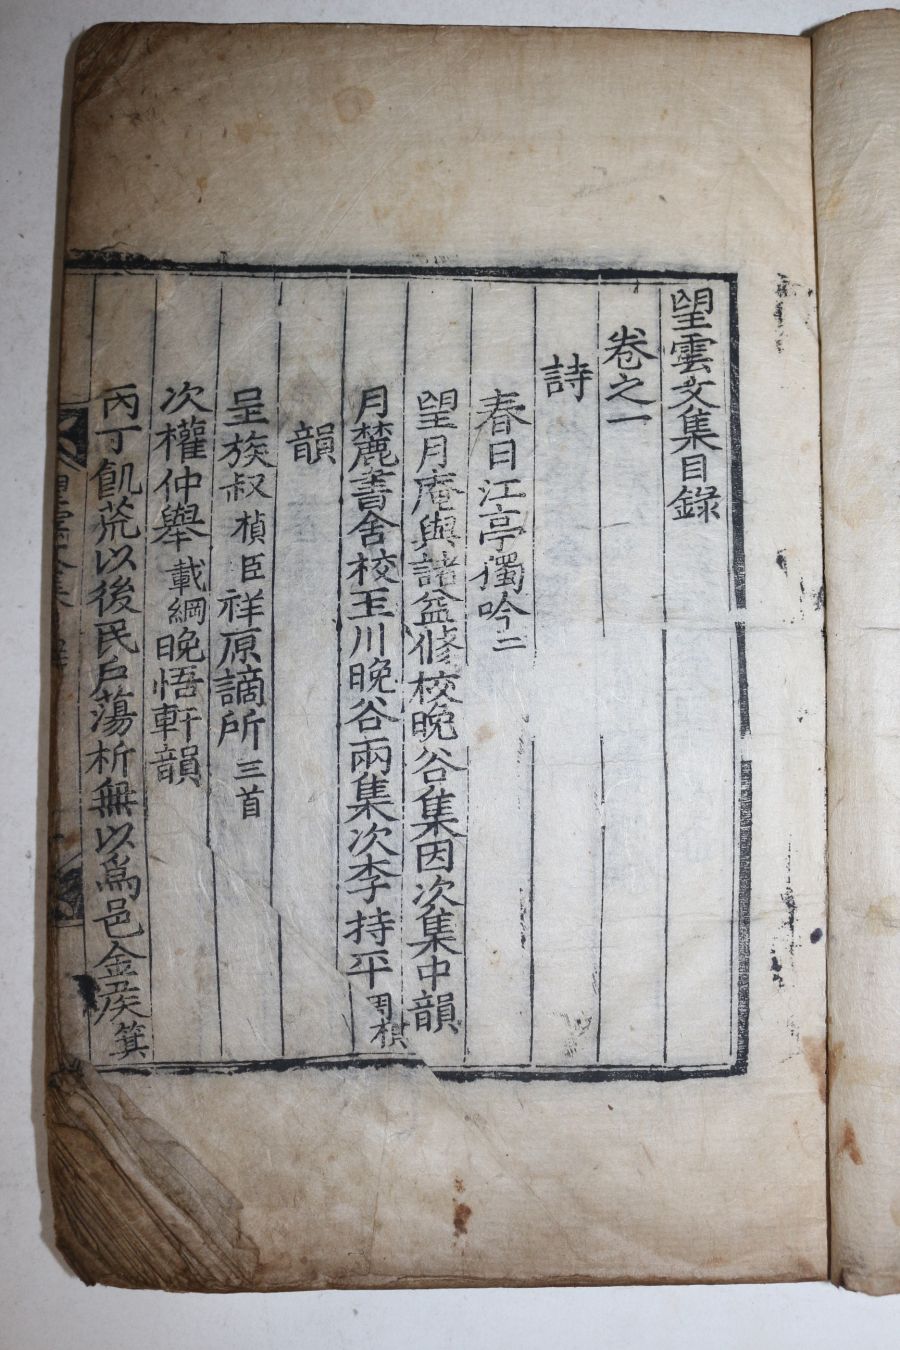 望雲文集目錄
卷之一
詩
春日江亭獨吟二
望月庵與諸益修校晚谷集因次集中韻
月麓書舍校玉川晚谷兩集次李持平周楨
韻
呈族叔楨臣祥原謫所三首
次權仲舉載綱晚悟軒韻
丙丁飢荒以後民戶蕩析無以爲邑金侯箕